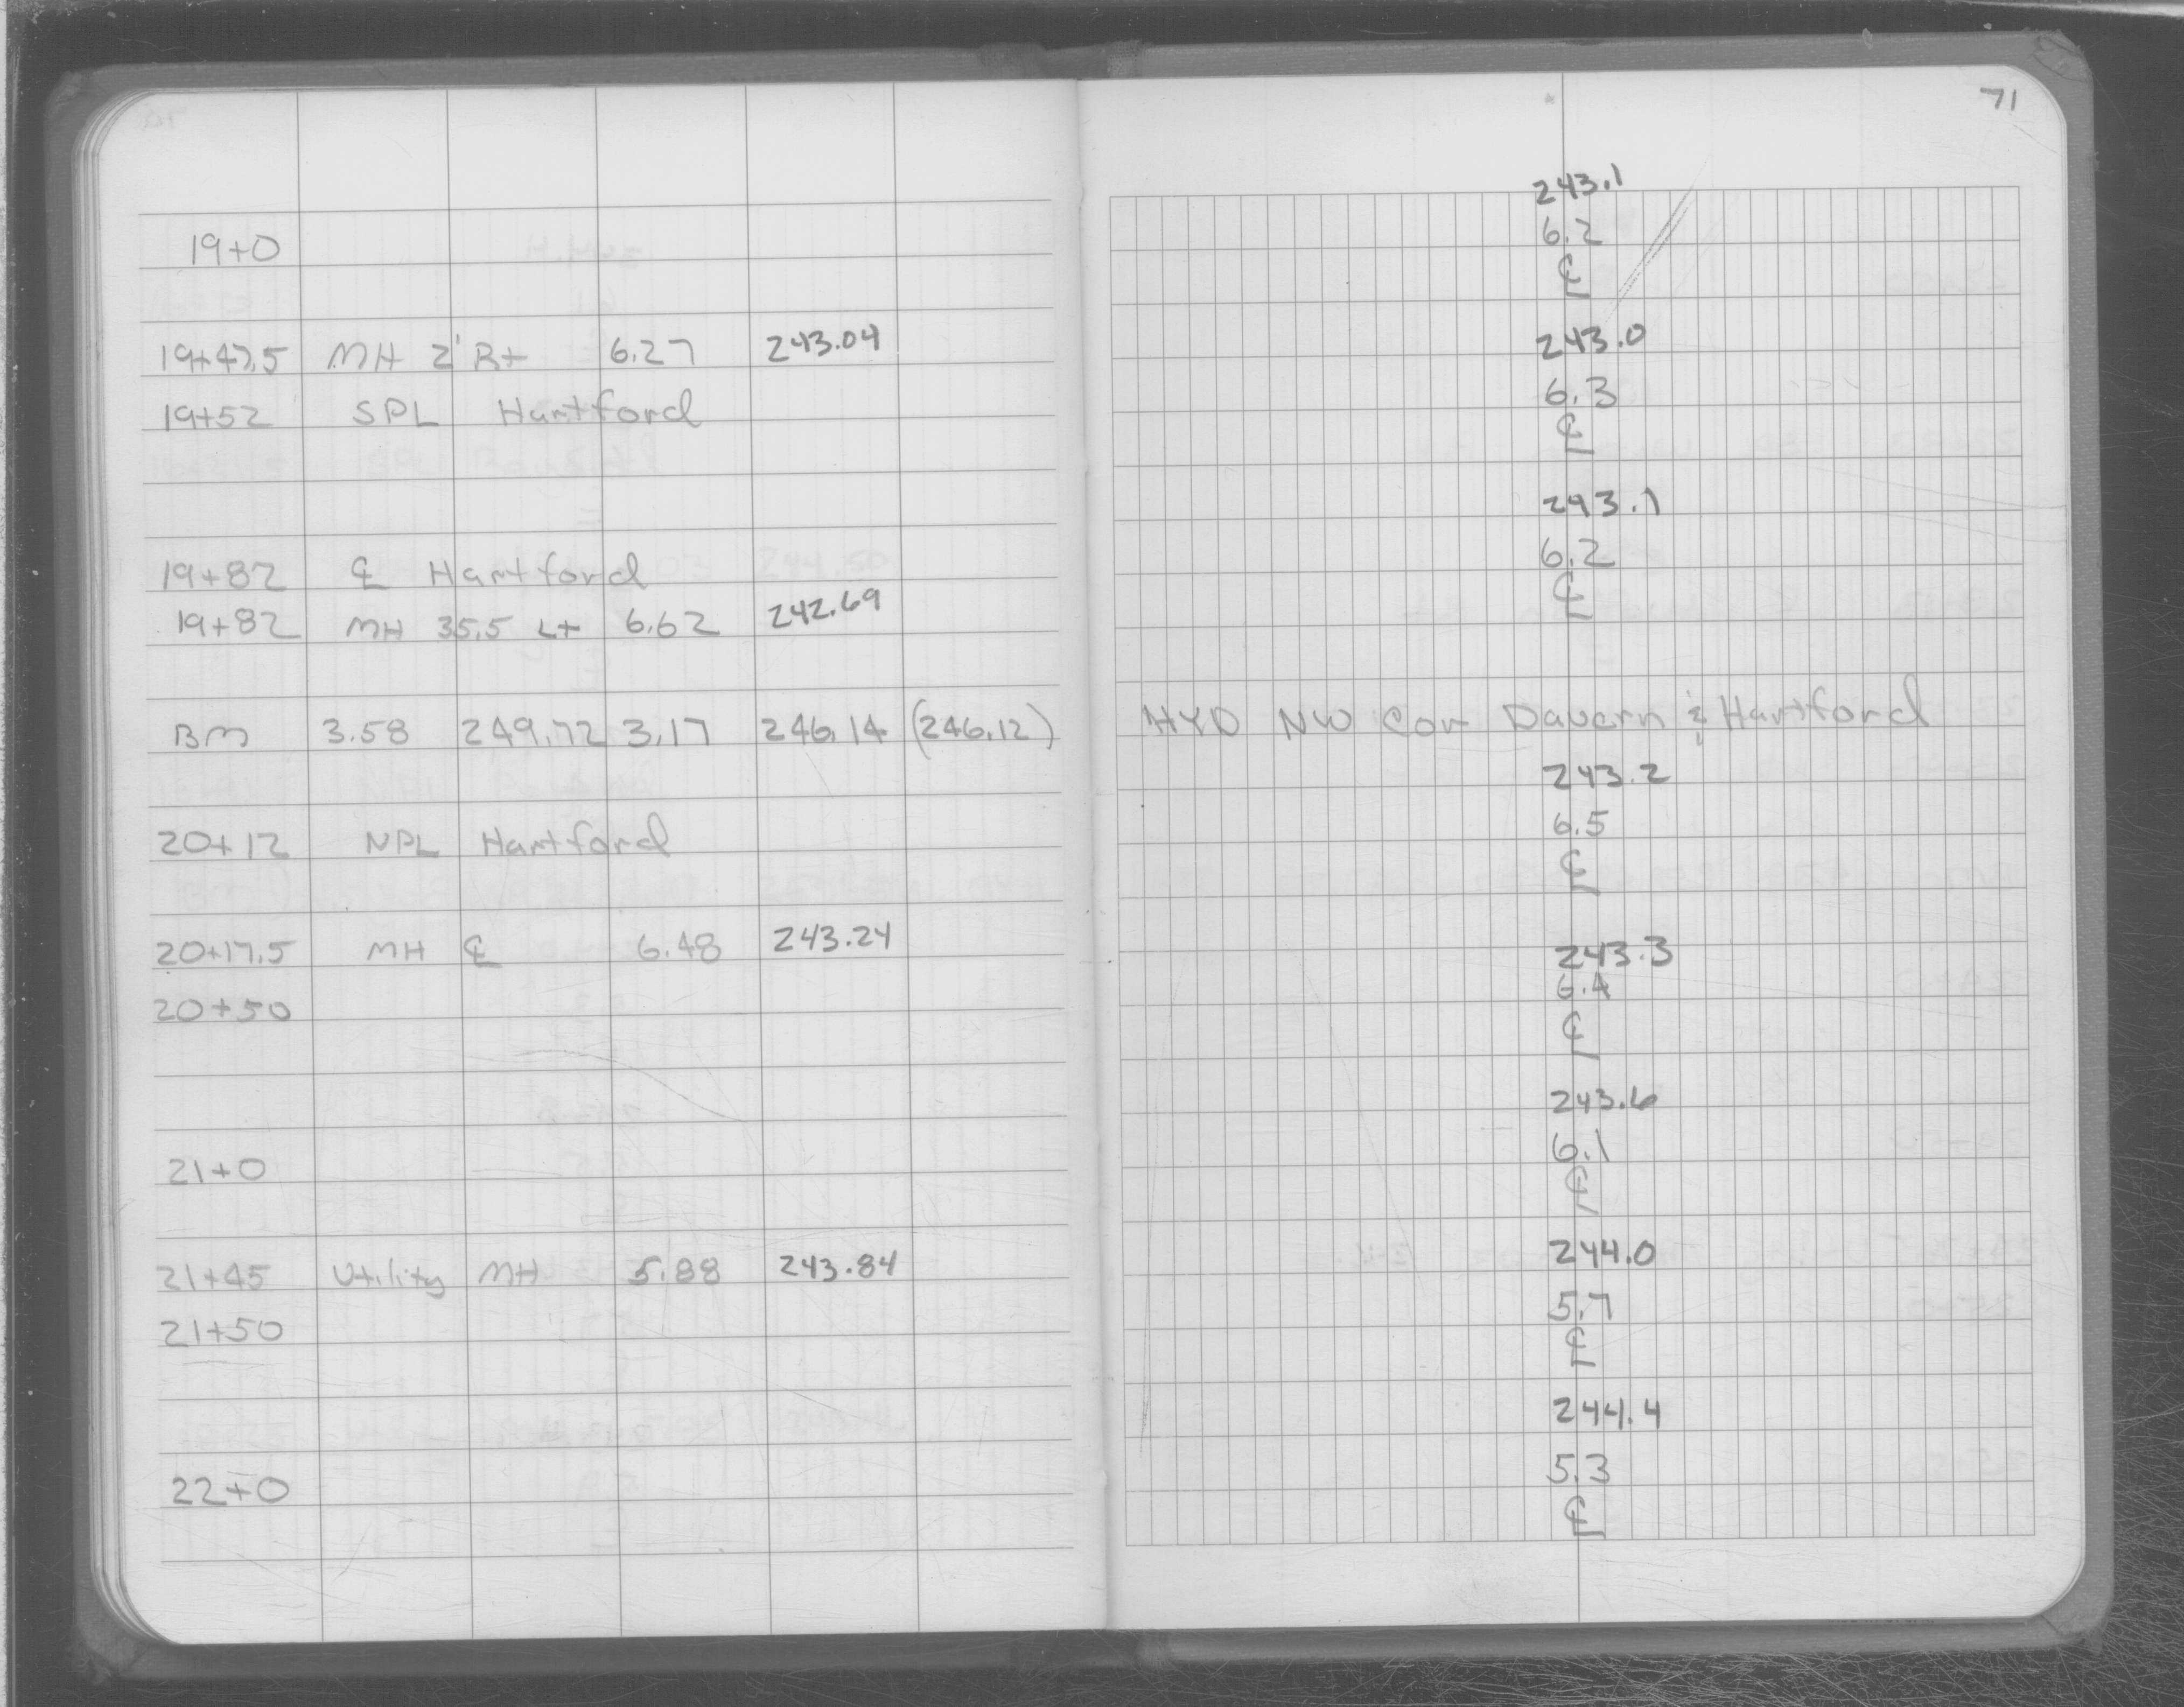 71
243.1
19+0 6.2
℄
19+47.5 MH 2' Rt 6.27 243.04 243.0
19+52 SPL Hartford 6.3
℄
243.1
19+82 ℄ Hartford 6.2
19+82 MH 35.5 Lt 6.62 242.69 ℄
BM 3.58 249.72 3.17 246.14 (246.12) HYD NW Cor Davern & Hartford
243.2
20+12 NPL Hartford 6.5
℄
20+17.5 MH ℄ 6.48 243.24 243.3
20+50 6.4
℄
243.6
21+0 6.1
℄
21+45 Utility MH 5.88 243.84 244.0
21+50 5.7
℄
244.4
22+0 5.3
℄